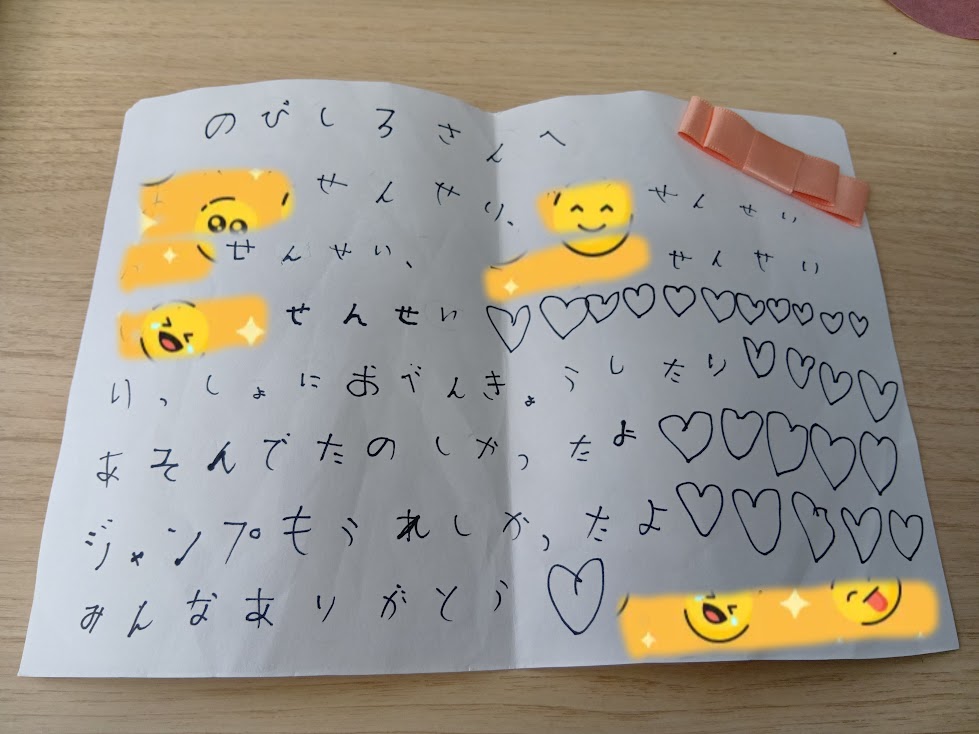 のびしろさんへ
せんせい、せんせい
せんせい、せんせい
せんせい♡♡♡♡♡♡♡♡♡♡♡
いっしょにおべんきょうしたり♡♡♡♡
あそんでたのしかったよ♡♡♡♡♡
ジャンプもうれしかったよ♡♡♡♡♡
みんなありがとう♡